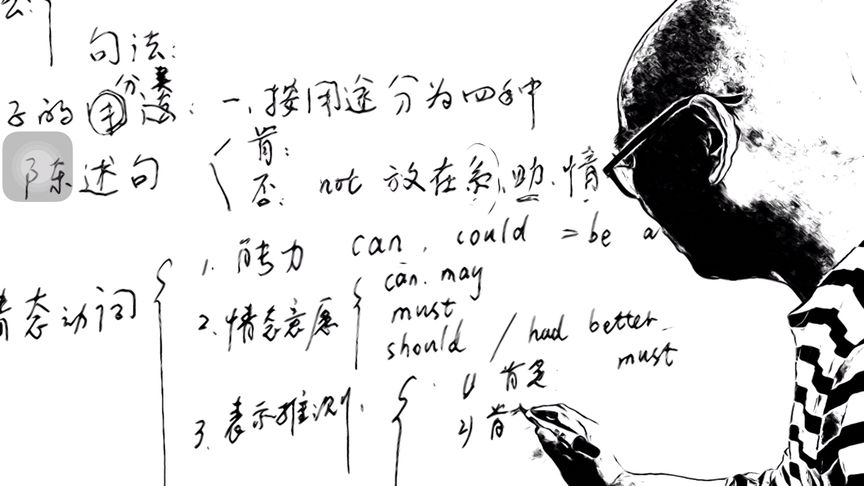 句法:
分类
子的用途: 一、按用途分为四种
陈述句
肯:
否: not 放在系,助,情
1. 能力 can, could = be a
情态动词
2. 情态意愿
can. may
must
should / had better
must
3. 表示推测.
1) 肯定
2) 肯